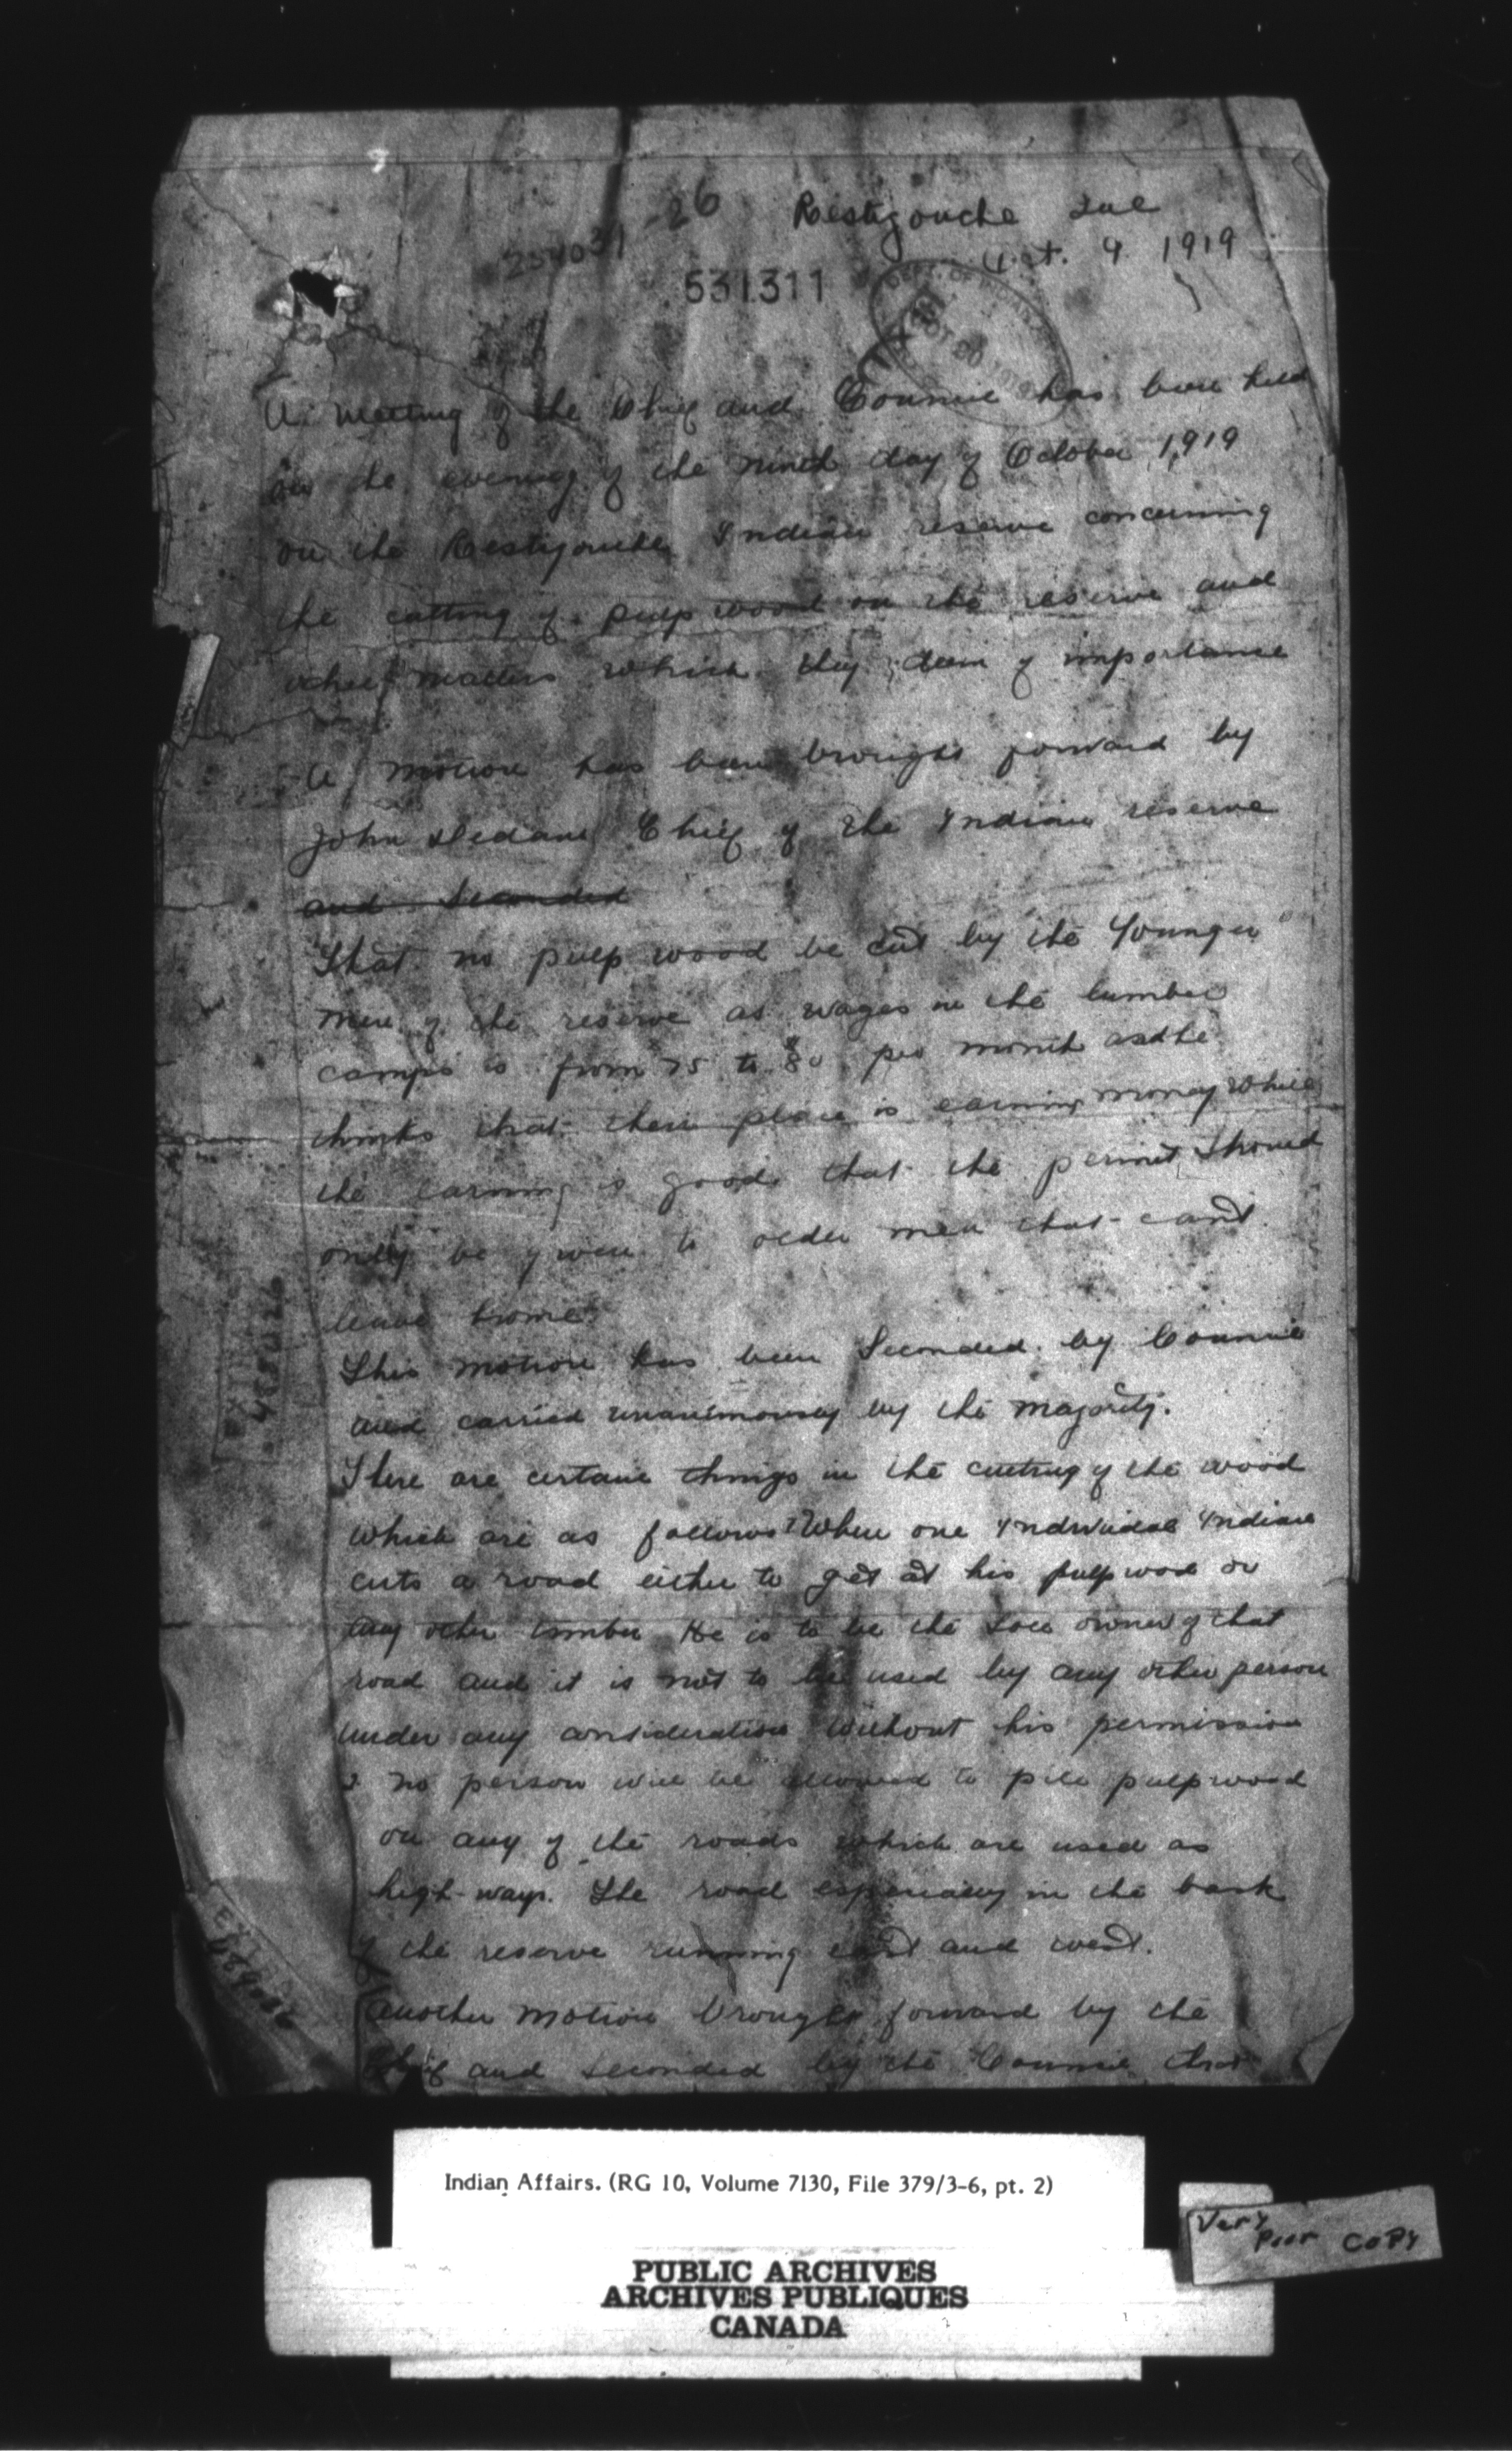 254031-26 Restigouche Que
Oct. 9 1919
531311
DEPT. OF INDIAN
OCT 20 1919
A meeting of the Chief and Councie has been held
on the evening of the ninth day of October 1919
on the Restigouche Indian reserve concerning
the cutting of pulp wood on the reserve and
other matters which they deem of importance
A motion has been brought forward by
John Chief of the Indian reserve
and seconded
That no pulp wood be cut by the Younger
men of the reserve as wages in the lumber
camps is from 75 to $80 per month as the
thinks that their place is earning money while
the earning is good that the permit should
only be given to older men that can't
leave home
This motion has been Seconded by Councie
and carried unanimously by the majority.
There are certain things in the cutting of the wood
which are as follows When one Individual Indian
cuts a road either to get at his pulp wood or
any other timber He is to be the sole owner of that
road and it is not to be used by any other person
under any consideration without his permission
2 no person will be allowed to pile pulp wood
on any of the roads which are used as
high-ways. The road especially in the back
of the reserve running east and west.
Another motion brought forward by the
Chief and seconded by the Councie that
Indian Affairs. (RG 10, Volume 7130, File 379/3-6, pt. 2)
Very Poor Copy
PUBLIC ARCHIVES
ARCHIVES PUBLIQUES
CANADA